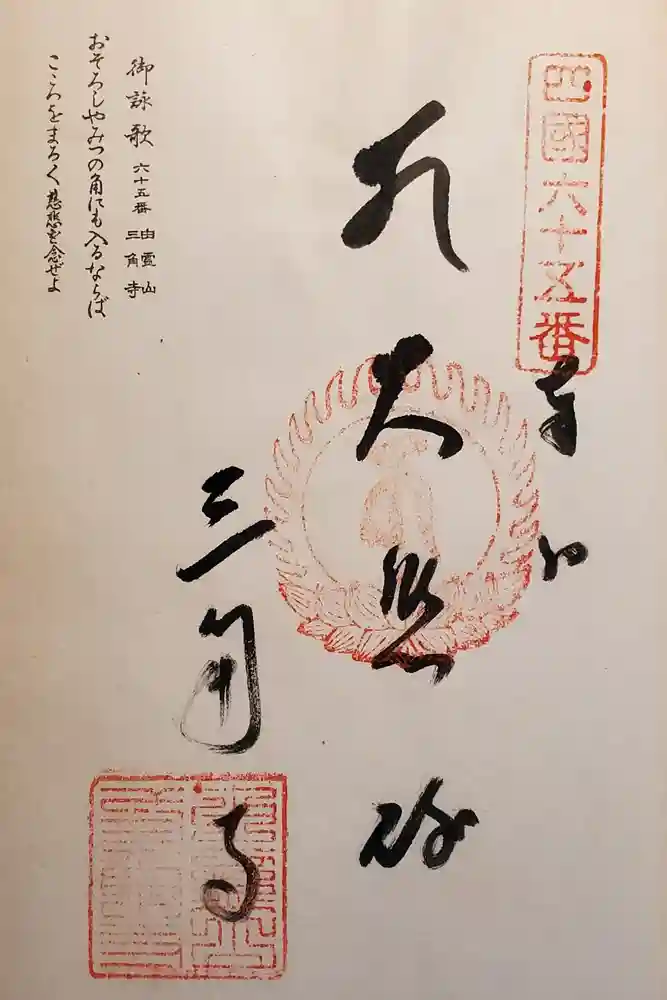 四國六十五番
奉納
大悲殿
三角寺
御詠歌 六十五番 由靈山 三角寺
おそろしやみつの角にも入るならば
こころをまろく慈悲を念ぜよ